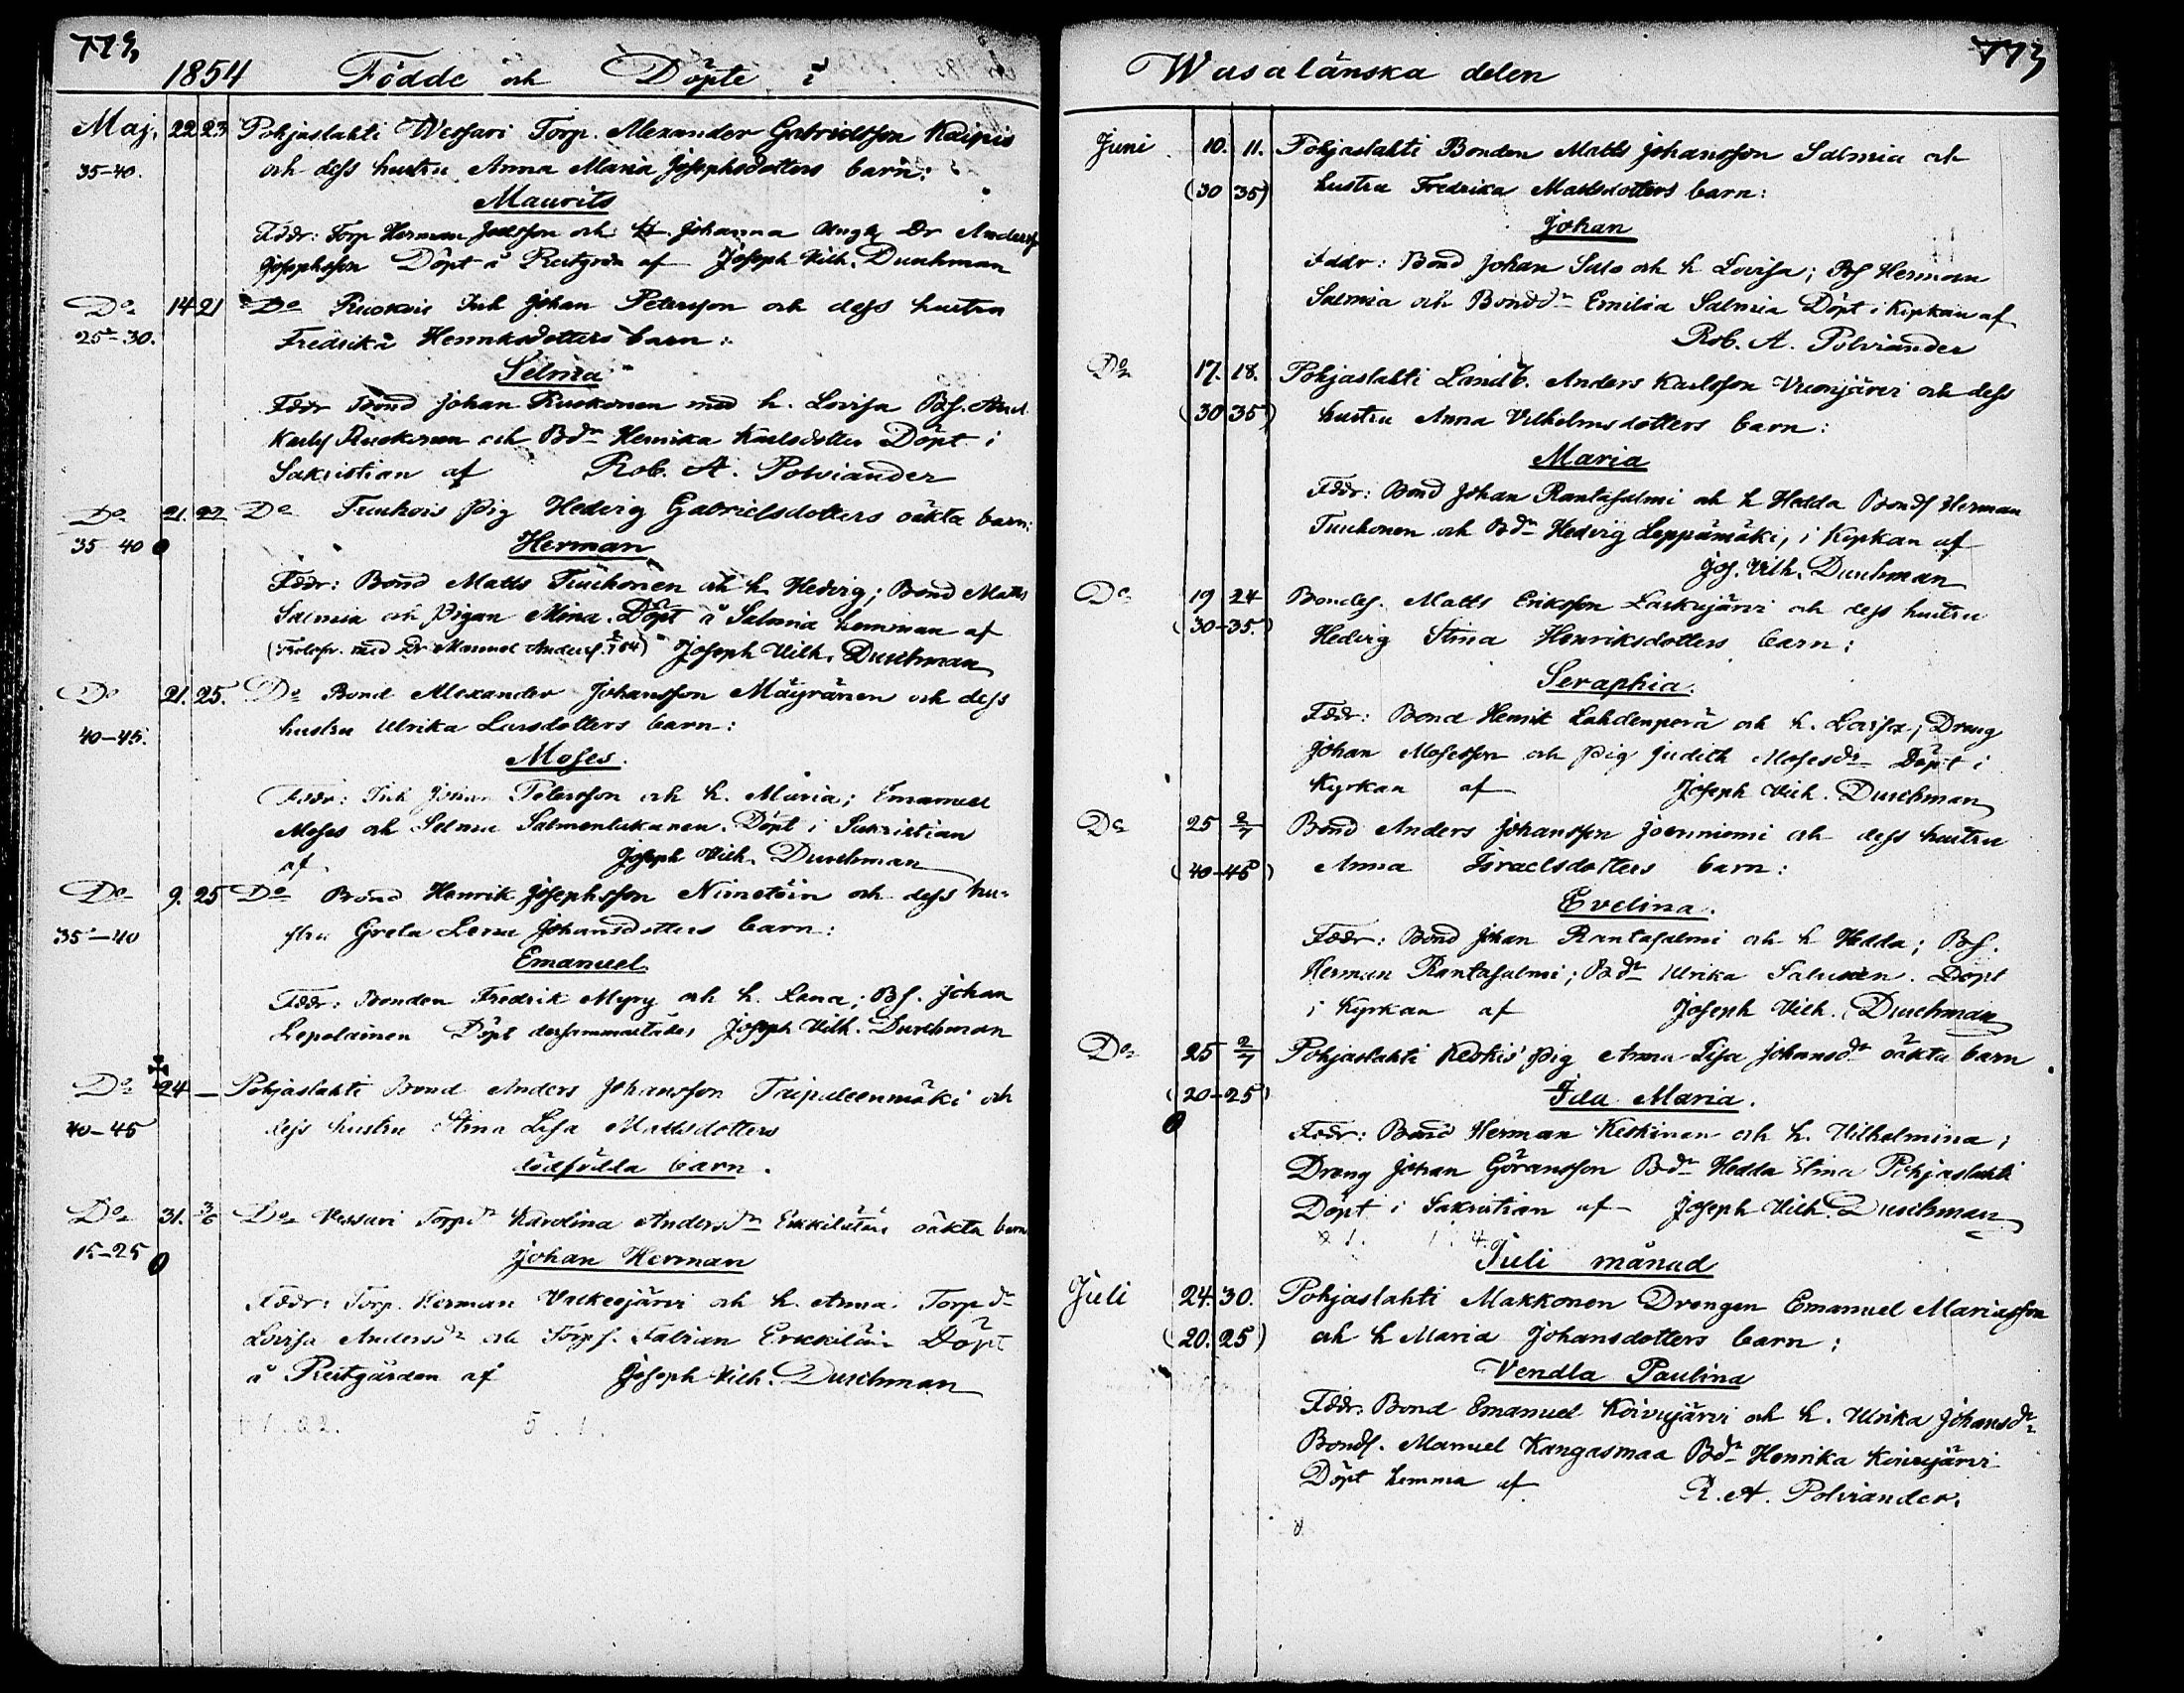 1854 Födde och Döpte i
Maj. 22 23 Pohjaslahti Wessari Torp. Alexander Gabrielsson Kaipis
35–40. och dess hustru Anna Maria Josephsdotters barn:
Maurits
Fddr: Torp Herman Joelsson och H. Johanna Ungk Dr Anders
Josephsson Döpt å Prestgrdn af Joseph Vilh. Duschman
Do 14 21 Do Ruokois Inh Johan Petersson och dess hustru
25–30. Fredrika Henriksdotters barn:
Selma
Fddr Bond Johan Ruokonen med h. Lovisa Bs. And
Karls Ruokonen och Bdr Henrika Karlsdotter Döpt i
Sakristian af Rob. A. Polviander
Do 21. 22 Do Tuuhois Pig Hedvig Gabrielsdotters oäkta barn:
35 40 Herman
Fddr: Bond Matts Tuuhonen och h Hedvig; Bond Matts
Salmia och Pigan Mina. Döpt å Salmia hemman af
Joseph Vilh. Duschman
Do 21. 25. Do Bond Alexander Johansson Mäyränen och dess
40–45. hustru Ulrika Larsdotters barn:
Moses.
Fddr: Inh Johan Petersson och h. Maria; Emanuel
Moses och Selma Salmenlukanen. Döpt i Sakristian
af Joseph Vilh. Duschman
Do 9. 25 Do Bond Henrik Josephsson Nimetöin och dess hu-
35–40 stru Greta Lena Johansdotters barn:
Emanuel
Fddr: Bonden Fredrik Myry och h. Lena; Bs. Johan
Lepolainen Döpt dersammastädes Joseph Vilh. Duschman
Do 24 — Pohjaslahti Bond Anders Johansson Taipaleenmäki och
40–45 dess hustru Stina Lisa Mattsdotters
dödfödda barn.
Do 31. 3/6 Do Vessari Torpdr Karolina Andersdr Erkkilätäs oäkta barn
15–25 Johan Herman
Fddr: Torp. Herman Valkeejärvi och h. Anna. Torpdr
Lovisa Andersdr och Torps. Fabian Erkkiläin Döpt
å Prestgården af Joseph Vilh. Duschman
773
Wasalänska delen
Juni 10. 11. Pohjaslahti Bonden Matts Johansson Salmia och
(30 35) hustru Fredrika Mattsdotters barn:
Johan
Fddr: Bond Johan Salo och h Lovisa; Bs Herman
Salmia och Bonddr Emilia Salmia Döpt i Kyrkan af
Rob. A. Polviander
Do 17. 18. Pohjaslahti Landb. Anders Karlsson Vuorijärvi och dess
(30 35) hustru Anna Vilhelmsdotters barn:
Maria
Fddr: Bond Johan Rantasalmi och h Hedda Bonds Herman
Tuuhonen och Bdr Hedvig Leppämäki, i Kyrkan af
Jos. Vilh. Duschman
Do 19 24 Bondes. Matts Eriksson Laskujärvi och dess hustru
(30–35.) Hedvig Stina Henriksdotters barn:
Seraphia.
Fddr: Bond Henrik Lahdenperä och h. Lovisa; Dreng
Johan Mosesson och Pig Judith Mosesdr Döpt i
Kyrkan af Joseph Vilh. Duschman
Do 25 2/7 Bond Anders Johansson Joenniemi och dess hustru
(40–45) Anna Israelsdotters barn:
Evelina.
Fddr: Bond Johan Rantasalmi och h Hedda; Bs.
Herman Rantasalmi; Bdr Ulrika Salinen. Döpt
i Kyrkan af Joseph Vilh. Duschman
Do 25 2/7 Pohjaslahti Keskis Pig Anna Lisa Johansdr oäkta barn
(20–25) Ida Maria.
Fddr: Bond Herman Keskinen och h. Vilhelmina;
Dreng Johan Göransson Bdr Hedda Stina Pohjaslahti
Döpt i Sakristian af Joseph Vilh. Duschman
Juli månad
Juli 24. 30. Pohjaslahti Makkonen Drengen Emanuel Mariasson
(20. 25) och h Maria Johansdotters barn:
Vendla Paulina
Fddr: Bond Emanuel Koivujärvi och h. Ulrika Johansdr
Bonds. Manuel Kangasmaa Bdr Henrika Koivujärvi
Döpt hemma af R. A. Polviander.